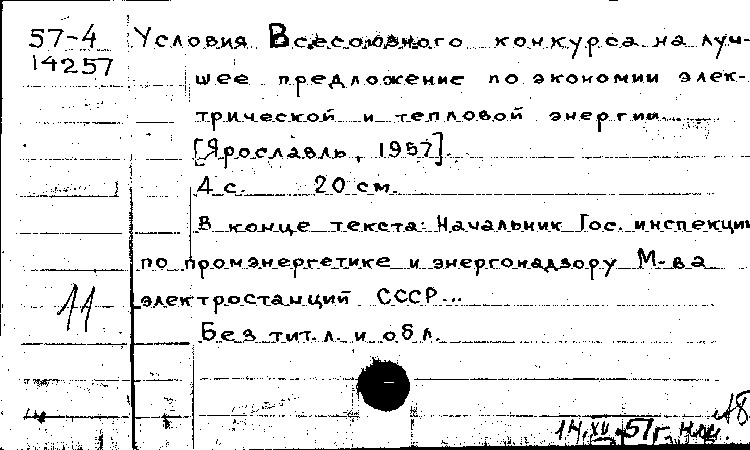 57-4
14257
Условия Всесоюзного конкурса на луч-
шее предложение по экономии элек-
трической и тепловой энергии.
[Ярославль, 1957].
4 с. 20 см.
В конце текста: Начальник Гос. инспекции
по промэнергетике и энергонадзору М-ва
электростанций СССР...
Без тит. л. и обл.
11
14.XII.57 г.